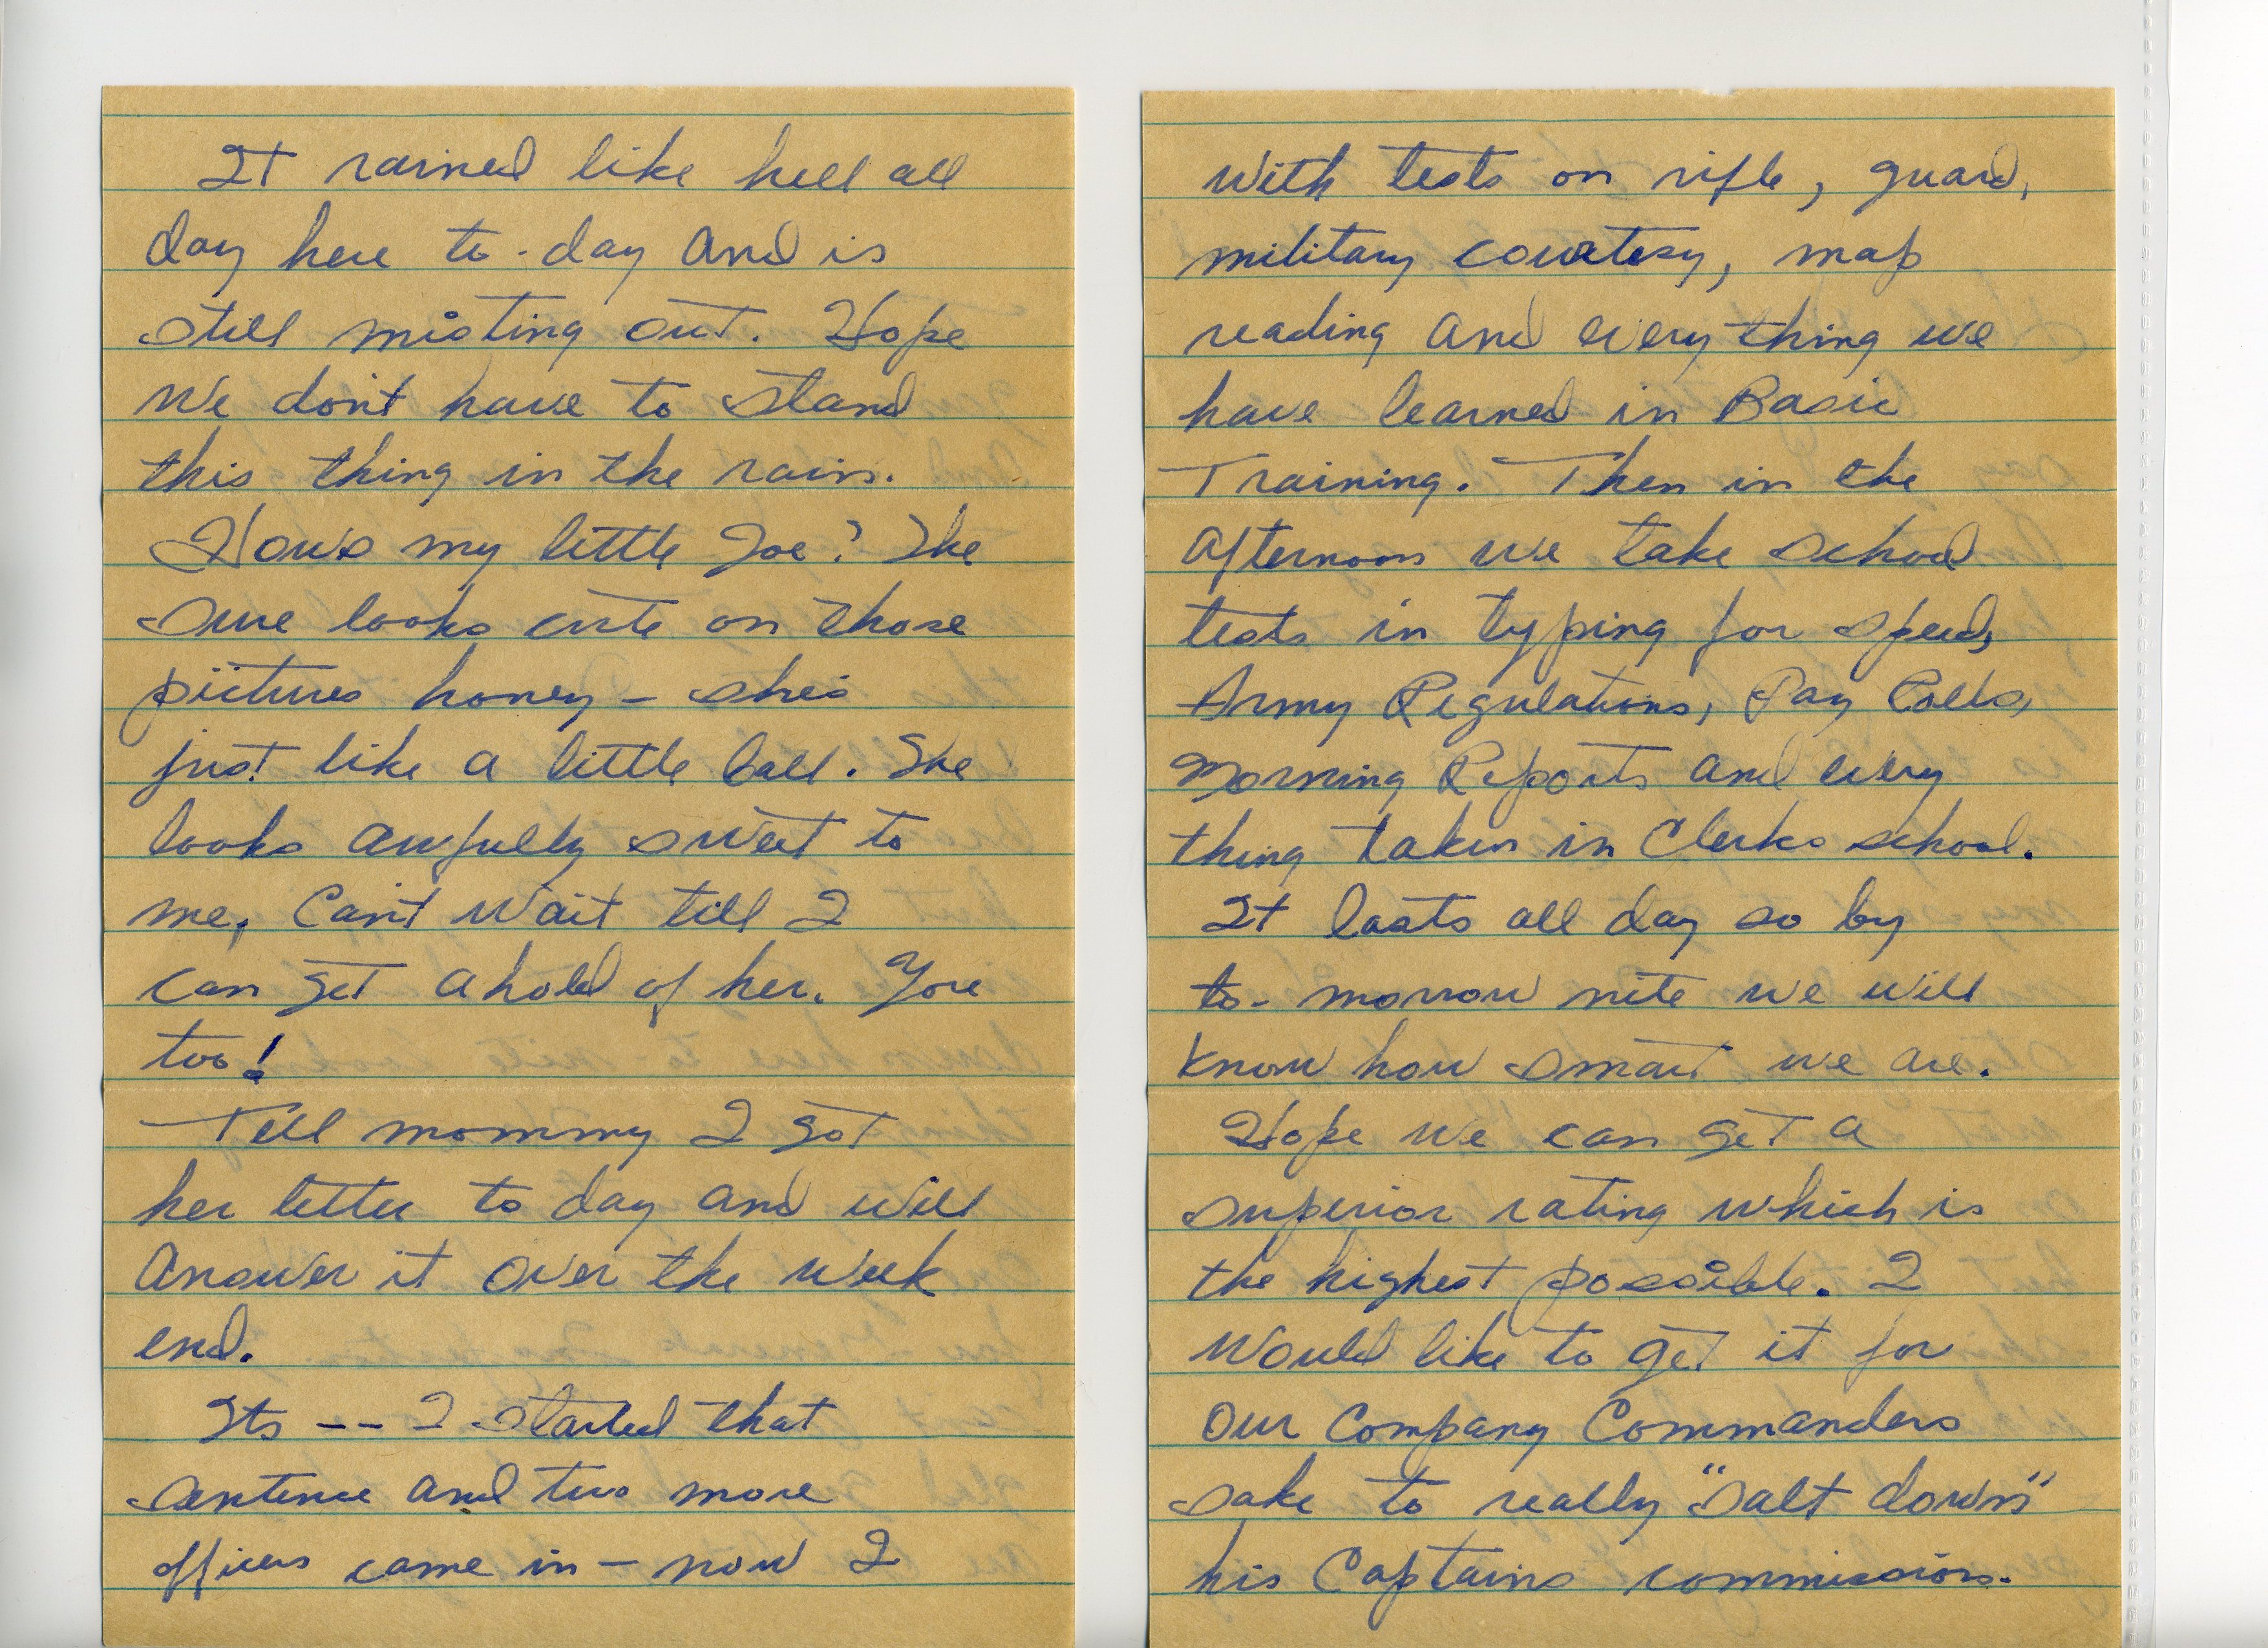 It rained like hell all
day here to-day and is
still misting out. Hope
we don't have to stand
this thing in the rain.
How's my little Joe? She
sure looks cute on those
pictures honey - she's
just like a little ball. She
looks awfully sweet to
me, Can't wait till I
can get ahold of her. You
too!
Tell mommy I got
her letter to day and will
answer it over the week
end.
Its -- I started that
sentence and two more
officers came in - now I
with tests on rifle, guard,
military courtesy, map
reading and everything we
have learned in Basic
Training. Then in the
afternoon we take school
tests in typing for speed,
Army Regulations, Pay Rolls,
Morning Reports and every
thing taken in Clerks school.
It lasts all day so by
to-morrow nite we will
know how smart we are.
Hope we can get a
superior rating which is
the highest possible. I
would like to get it for
our Company Commanders
sake to really "salt down"
his Captains commission.